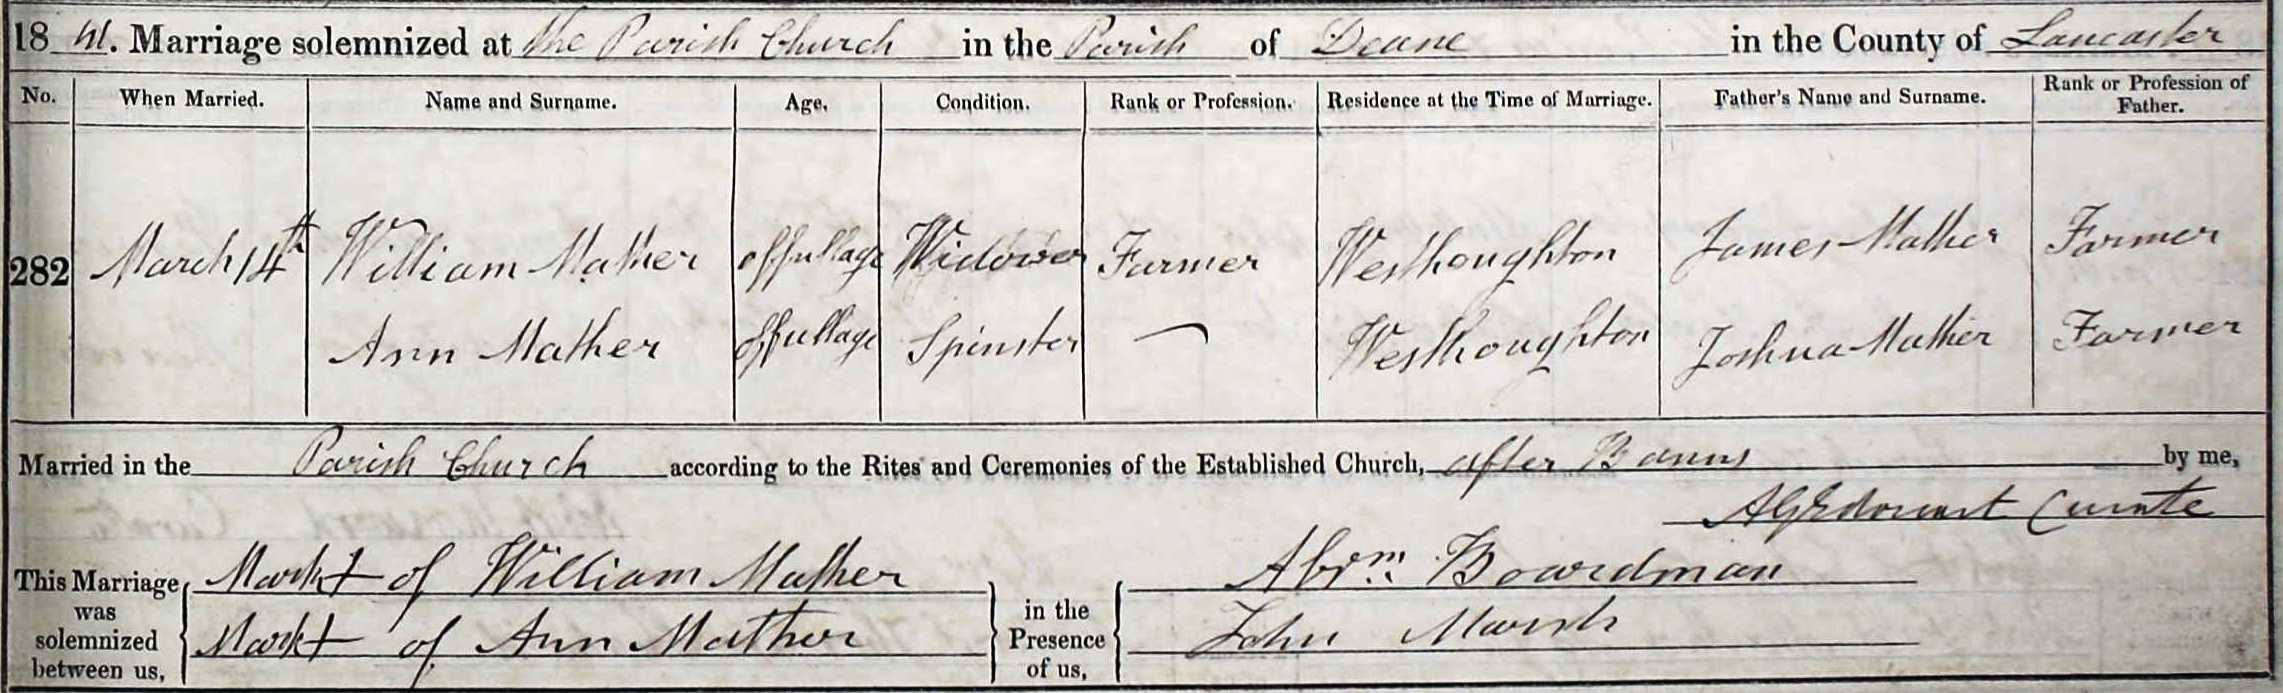 1841. Marriage solemnized at the Parish Church in the Parish of Deane in the County of Lancaster
No. When Married. Name and Surname. Age. Condition. Rank or Profession. Residence at the Time of Marriage. Father's Name and Surname. Rank or Profession of Father.
282 March 14th William Mather of full age Widower Farmer Westhoughton James Mather Farmer
Ann Mather of full age Spinster — Westhoughton Joshua Mather Farmer
Married in the Parish Church according to the Rites and Ceremonies of the Established Church, after Banns by me,
Curate
This Marriage was solemnized between us, Mark + of William Mather in the Presence of us, Abrm. Boardman
Mark + of Ann Mather John Marsh